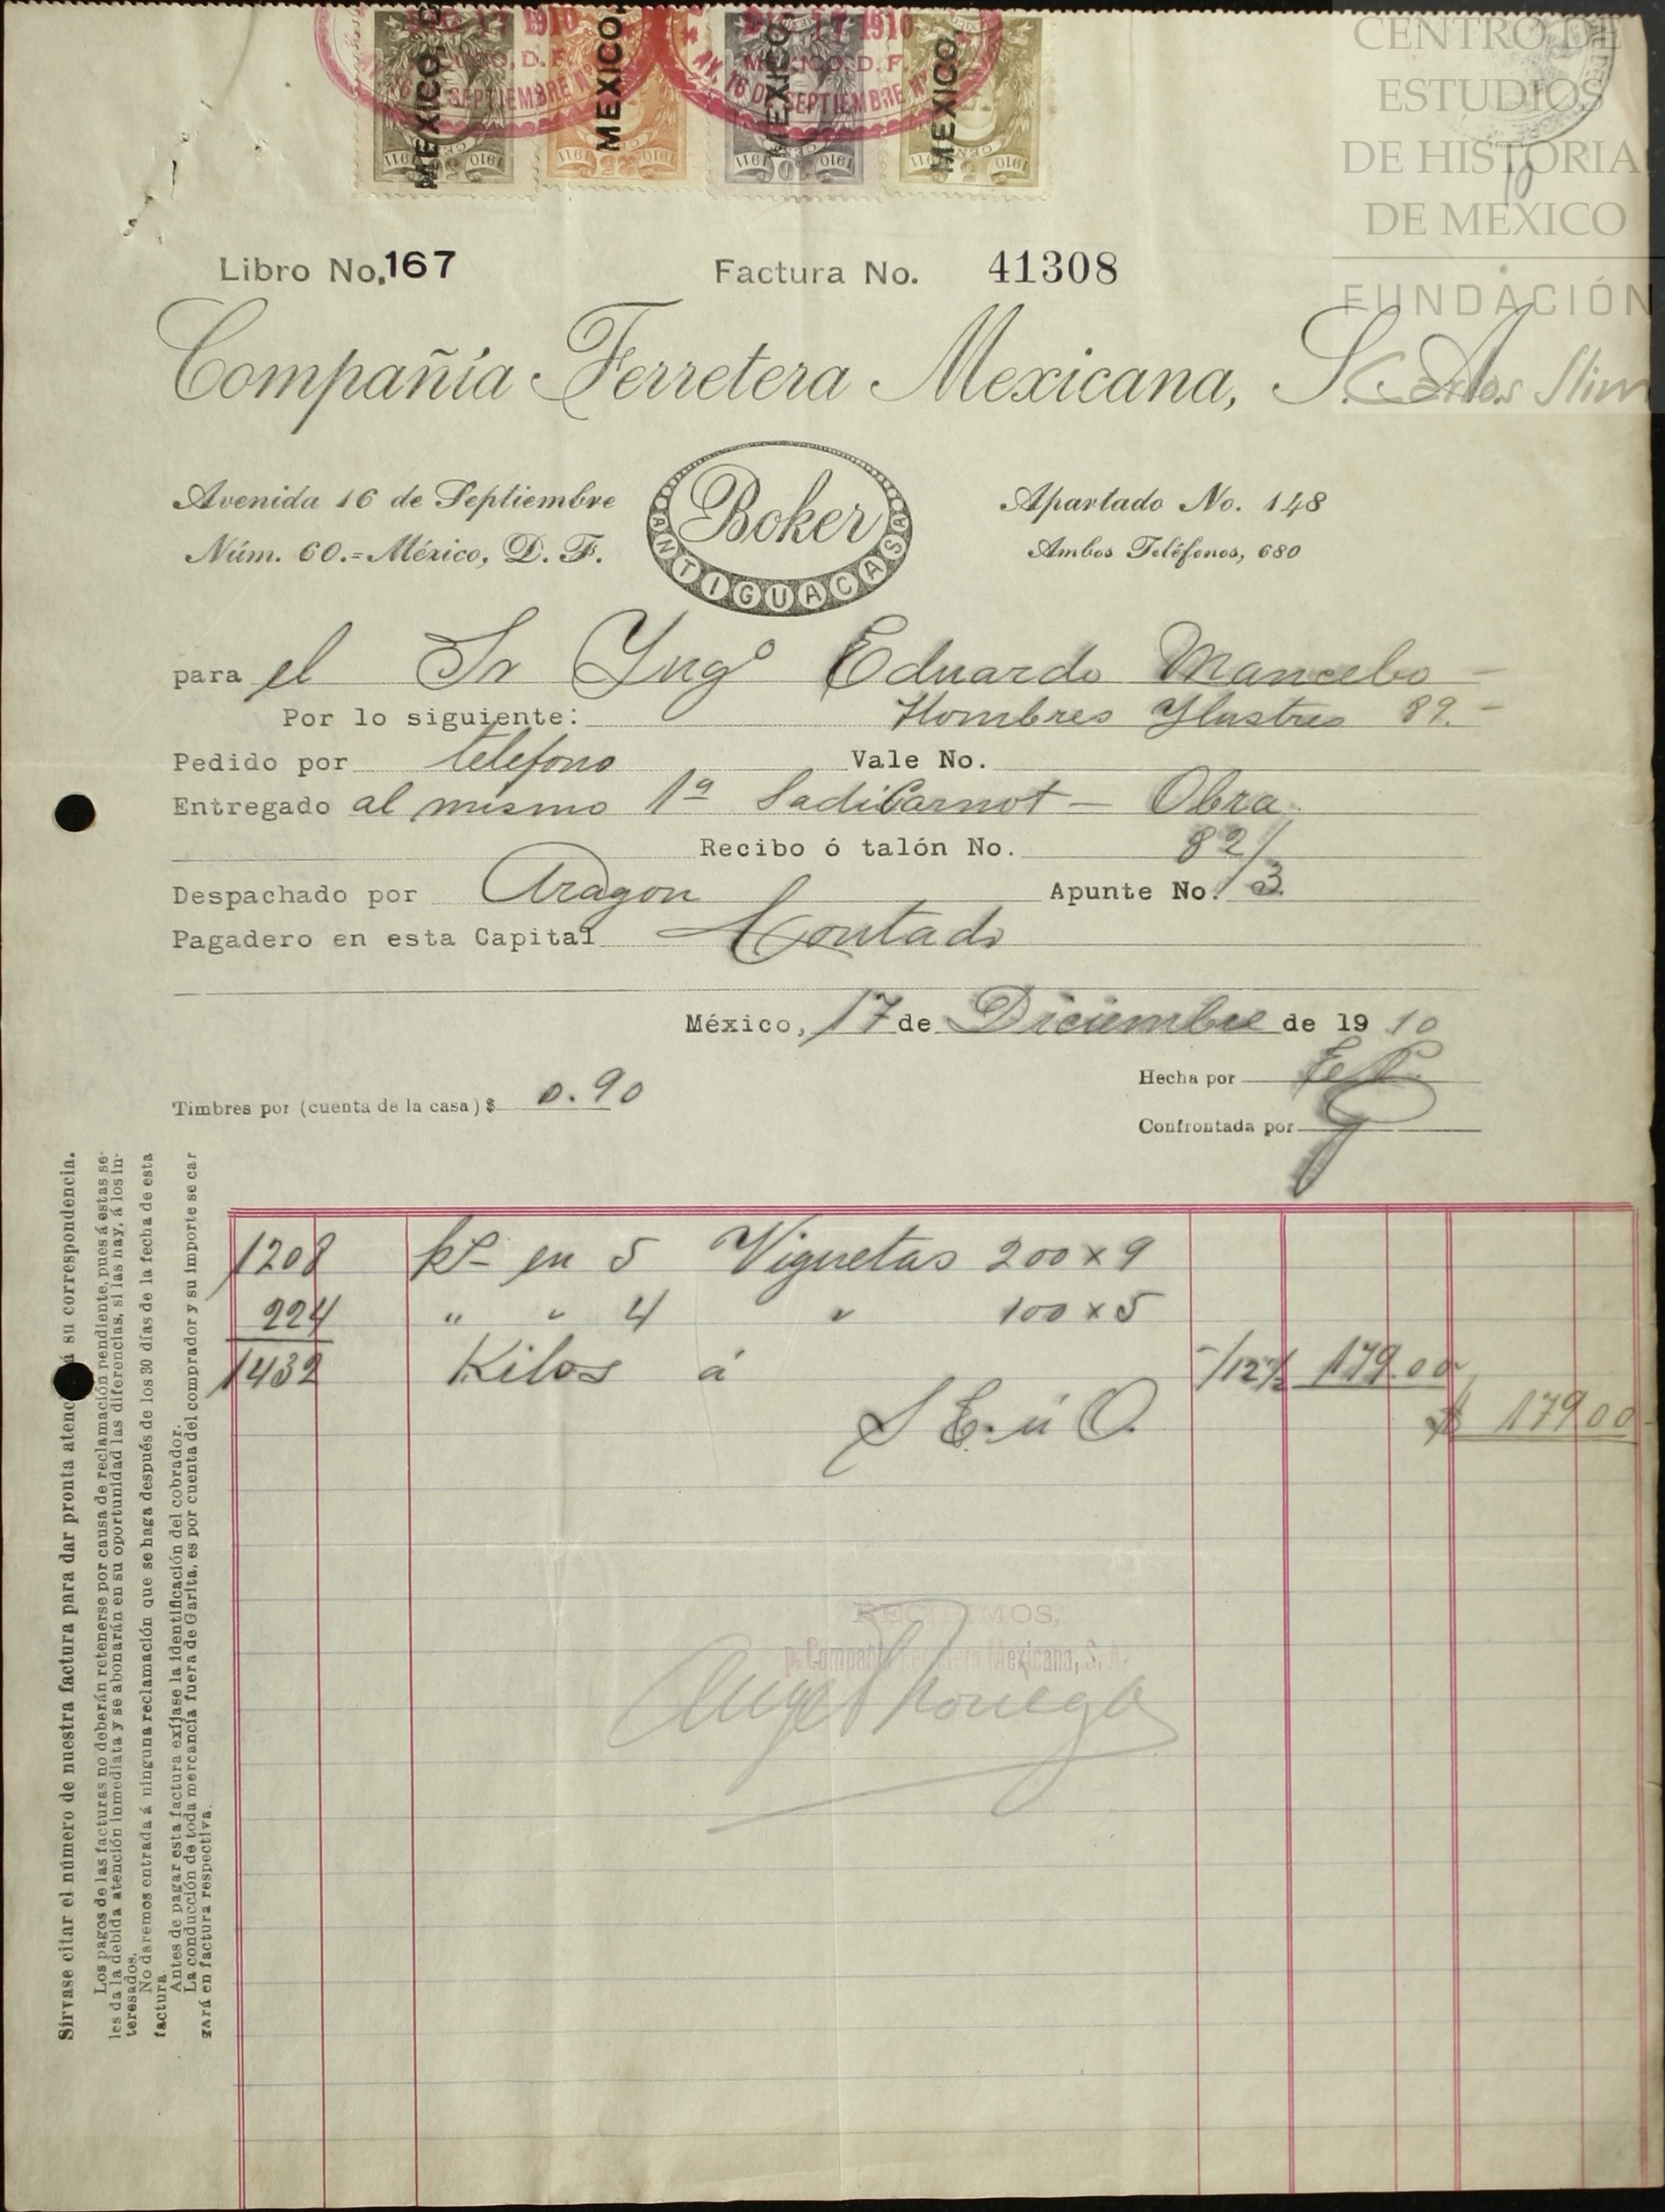 DIC 17 1910
MEXICO, D. F.
AV. 16 DE SEPTIEMBRE Nº
DIC 17 1910
MEXICO, D. F.
AV. 16 DE SEPTIEMBRE Nº
MEXICO.
MEXICO.
MEXICO.
MEXICO.
1910 1911
1910 1911
1910 1911
1910 1911
CENTRO DE
ESTUDIOS
DE HISTORIA
DE MEXICO
FUNDACIÓN
Carlos Slim
10
Libro No. 167 Factura No. 41308
Compañía Ferretera Mexicana, S. A.
Avenida 16 de Septiembre
Núm. 60.=México, D. F.
Boker
ANTIGUA CASA
Apartado No. 148
Ambos Teléfonos, 680
para el Sr Yngº Eduardo Mancebo —
Por lo siguiente: Hombres Ylustres 89.—
Pedido por telefono Vale No.
Entregado al mismo 1ª Sadi Carnot — Obra.
Recibo ó talón No. 82/3
Despachado por Aragon Apunte No.
Pagadero en esta Capital Contado
México, 17 de Diciembre de 1910
Hecha por
Timbres por (cuenta de la casa) $ 0.90
Confrontada por
Sírvase citar el número de nuestra factura para dar pronta atenc á su correspondencia.
Los pagos de las facturas no deberán retenerse por causa de reclamación pendiente, pues á estas se-
les da la debida atención inmediata y se abonarán en su oportunidad las diferencias, si las hay, á los in-
teresados.
No daremos entrada á ninguna reclamación que se haga después de los 30 días de la fecha de esta
factura.
Antes de pagar esta factura exíjase la identificación del cobrador.
La conducción de toda mercancía fuera de Garita, es por cuenta del comprador y su importe se car
gará en factura respectiva.
1208 ks en 5 Viguetas 200 x 9
224 " " 4 " 100 x 5
1432 Kilos á -/12½ 179.00
S E. ú O. $ 179 00
RECIBIMOS,
p. Compañía Ferretera Mexicana, S. A.
Angel Noriega